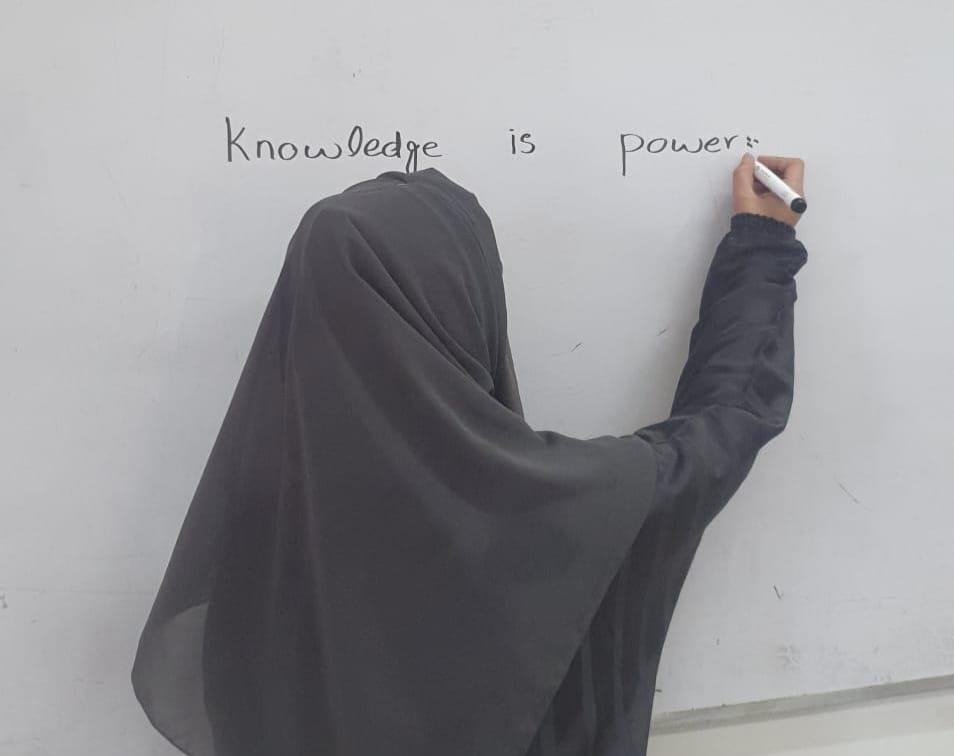 Knowledge is power